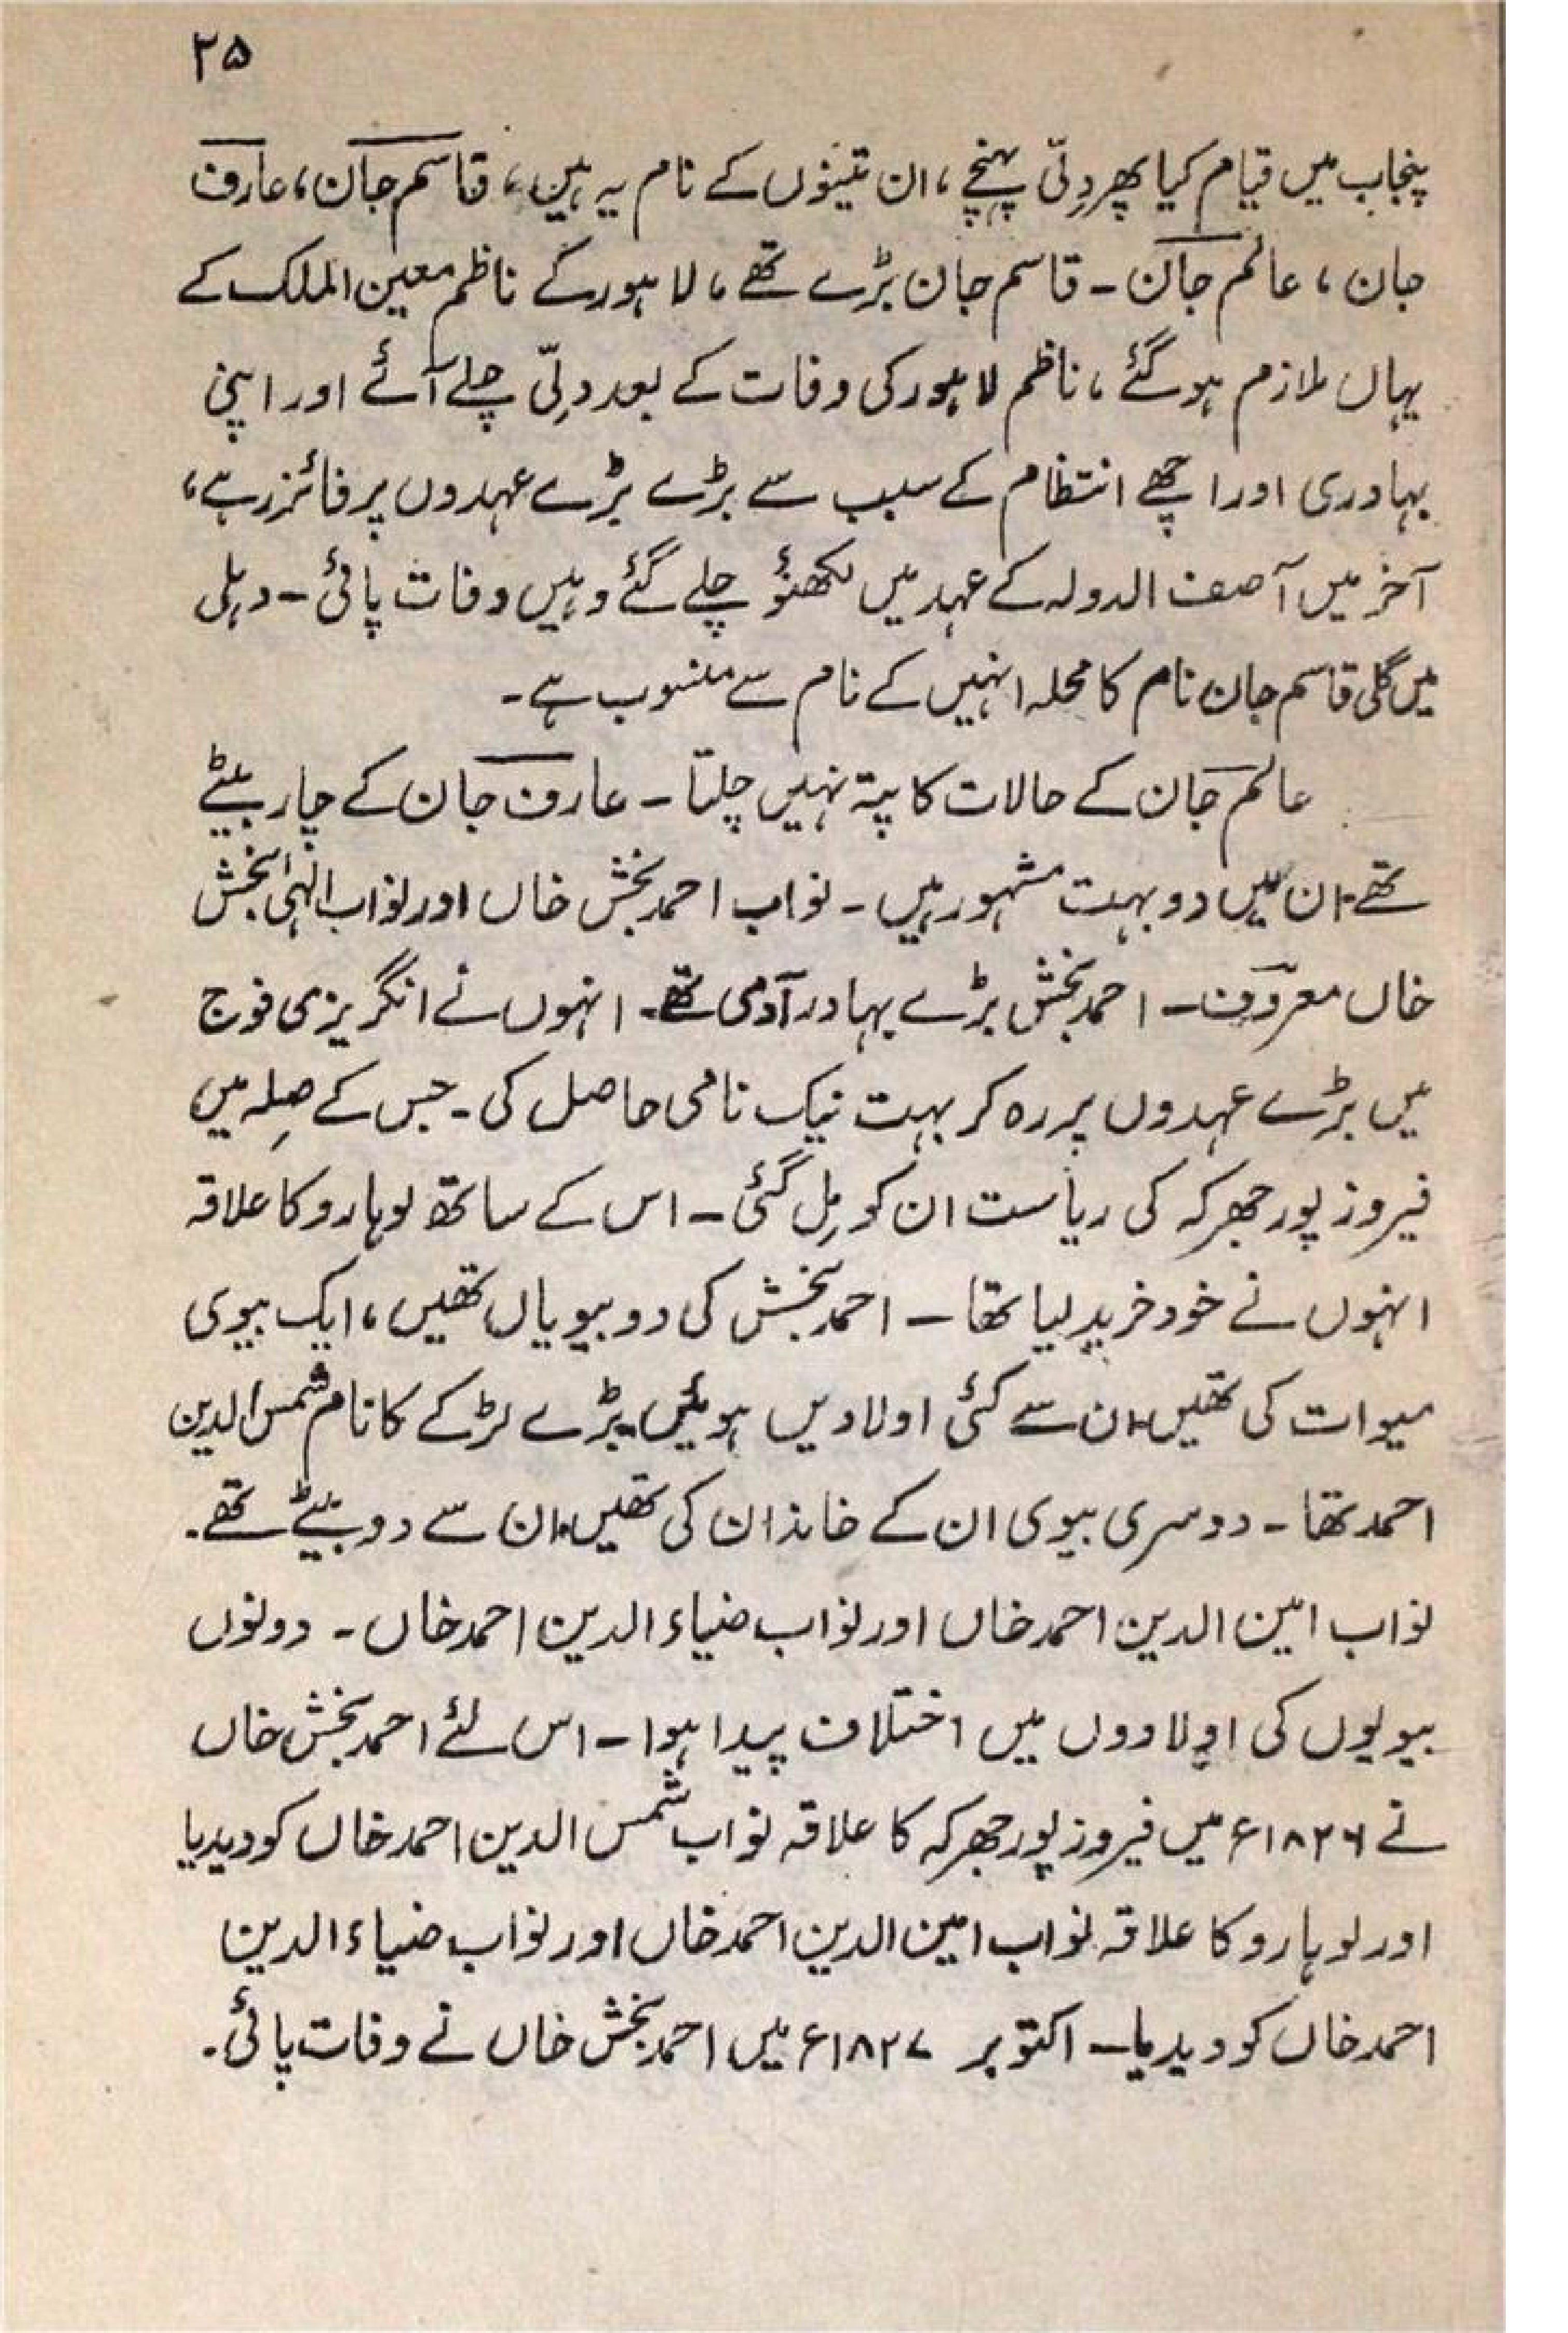 ۲۵
پنجاب میں قیام کیا پھر دِلّی پہنچے، ان تینوں کے نام یہ ہیں، قاسم جان، عارف
جان، عالم جان ـ قاسم جان بڑے تھے، لاہور کے ناظم معین الملک کے
یہاں ملازم ہو گئے، ناظم لاہور کی وفات کے بعد دلّی چلے آئے اور اپنی
بہادری اور اچھے انتظام کے سبب سے بڑے بڑے عہدوں پر فائز رہے،
آخر میں آصف الدولہ کے عہد میں لکھنؤ چلے گئے وہیں وفات پائی ـ دہلی
میں گلی قاسم جان نام کا محلہ انہیں کے نام سے منسوب ہے ـ
عالم جان کے حالات کا پتہ نہیں چلتا ـ عارف جان کے چار بیٹے
تھے۔ ان میں دو بہت مشہور ہیں ـ نواب احمد بخش خاں اور نواب الٰہی بخش
خاں معروف ـ احمد بخش بڑے بہادر آدمی تھے۔ انہوں نے انگریزی فوج
میں بڑے عہدوں پر رہ کر بہت نیک نامی حاصل کی ـ جس کے صِلہ میں
فیروز پور جھرکہ کی ریاست ان کو مِل گئی ـ اس کے ساتھ لوہارو کا علاقہ
انہوں نے خود خرید لیا تھا ـ احمد بخش کی دو بیویاں تھیں، ایک بیوی
میوات کی تھیں، ان سے کئی اولادیں ہوئیں۔ بڑے لڑکے کا نام شمس الدین
احمد تھا ـ دوسری بیوی ان کے خاندان کی تھیں۔ ان سے دو بیٹے تھے۔
نواب امین الدین احمد خاں اور نواب ضیاء الدین احمد خاں ـ دونوں
بیویوں کی اولادوں میں اختلاف پیدا ہوا ـ اس لئے احمد بخش خاں
نے ۱۸۲۶ء میں فیروز پور جھرکہ کا علاقہ نواب شمس الدین احمد خاں کو دیدیا
اور لوہارو کا علاقہ نواب امین الدین احمد خاں اور نواب ضیاء الدین
احمد خاں کو دیدیا ـ اکتوبر ۱۸۲۷ء میں احمد بخش خاں نے وفات پائی۔